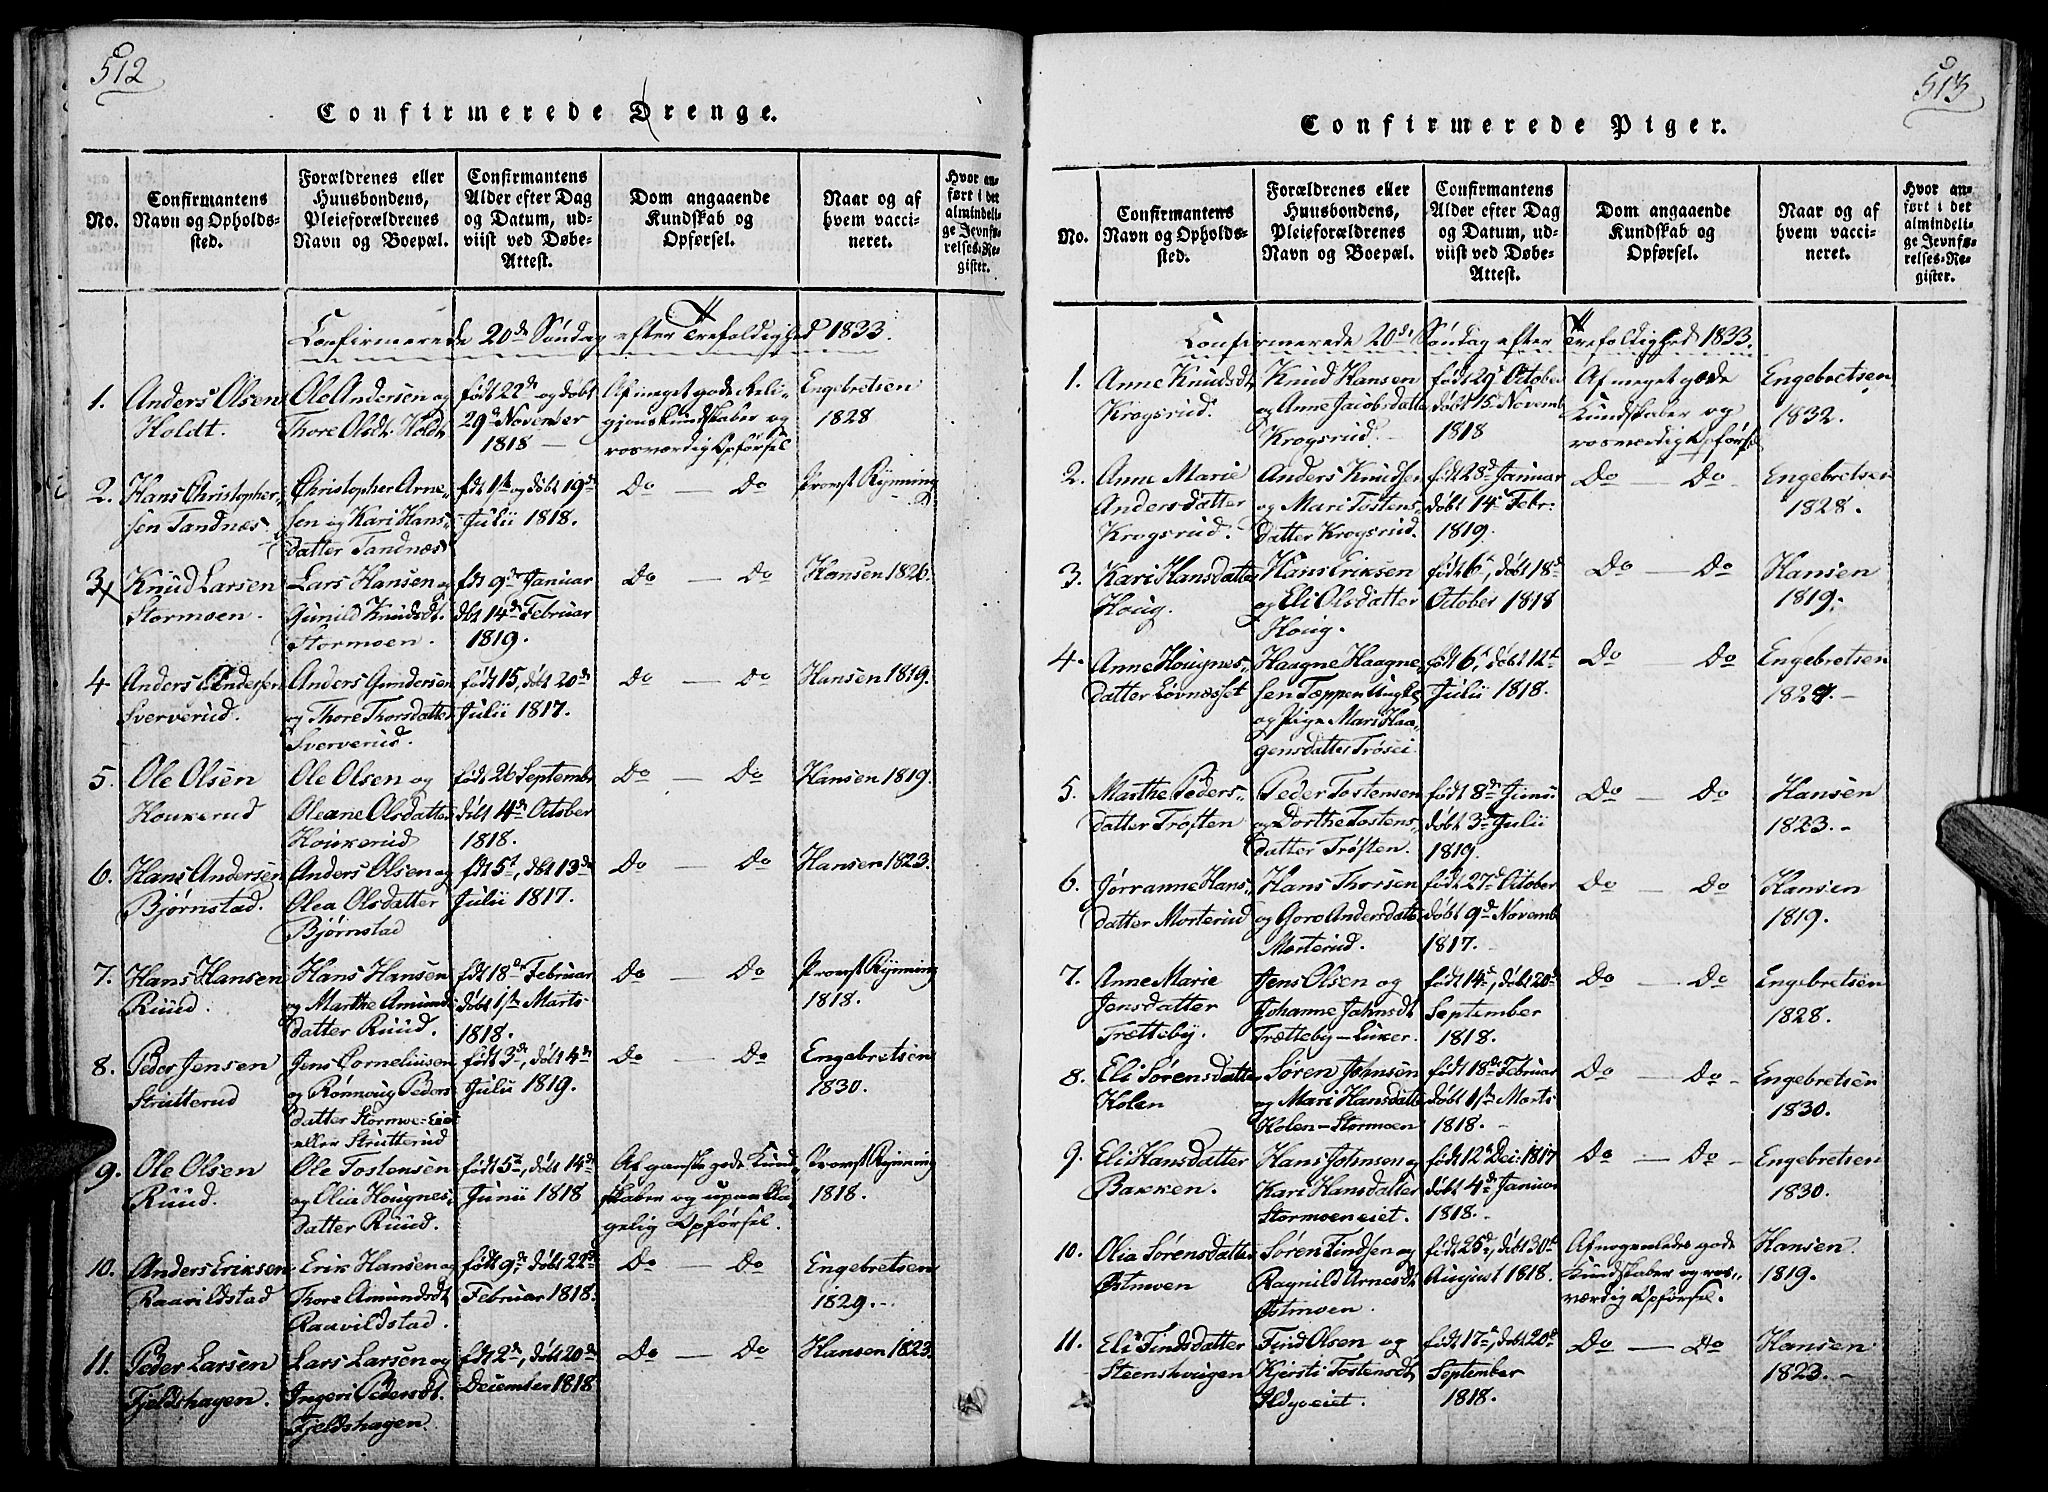 512
Confirmerede Drenge.
No.
Confirmantens
Navn og Opholds-
sted.
Forældrenes eller
Huusbondens,
Pleieforældrenes
Navn og Boepæl.
Confirmantens
Alder efter Dag
og Datum, ud-
viist ved Døbe-
Attest.
Dom angaaende
Kundskab og
Opførsel.
Naar og af
hvem vacci-
neret.
Hvor an-
ført i det
almindeli-
ge Jevnfø-
relses-Re-
gister.
Confirmerede 20de Søndag efter Trefoldighed 1833.
1.
Anders Olsen
Holdt.
Ole Andersen og
Thore Olsdt. Holdt
født 22de og døbt
29de November
1818 —
Af meget gode Reli-
gionskundskaber og
rosværdig Opførsel
Engebretsen
1828
2.
Hans Christopher-
sen Tandnæs
Christopher Arne-
sen og Kari Hans-
datter Tandnæs
fdt 1ste og døbt 19de
Julii 1818.
Do — Do
Provst Rynning
3.
Knud Larsen
Stormoen.
Lars Hansen og
Gunild Knudsdt.
Stormoen
fdt 9de Januar
dbt 14de Februar
1819.
Do — Do
Hansen 1826.
4
Anders Gundersen
Sververud.
Anders Gundersen
og Thore Thorsdatter
Sververud.
født 15, døbt 20de
Julii 1817.
Do — Do
Hansen 1819.
5.
Ole Olsen
Houkerud
Ole Olsen og
Oleane Olsdatter
Houkerud
født 26 Septembr
døbt 4de October
1818.
Do — Do
Hansen 1819.
6.
Hans Andersen
Bjørnstad.
Anders Olsen og
Olea Olsdatter
Bjørnstad
fdt 5te, dbt 13de
Julii 1817.
Do — Do
Hansen 1823.
7.
Hans Hansen
Ruud.
Hans Hansen
og Marthe Amunds
datter Ruud.
fdt 18de Februar
døbt 1ste Marts
1818.
Do — Do
Provst Rynning
1818.
8.
Peder Jensen
Strutterud
Jens Corneliusen
og Rønnoug Peders
datter Stormoe-Eiet
eller Strutterud
født 3de, døbt 4de
Julii 1819.
Do — Do
Engebretsen
1830.
9.
Ole Olsen
Ruud.
Ole Tostensen
og Olia Hougnes-
datter Ruud.
født 5te, døbt 14de
Junii 1818
Af ganske gode Kund-
skaber og upaakla-
gelig Opførsel.
Provst Rynning
1818.
10.
Anders Eriksen
Raavildstad
Erik Hansen og
Thore Amundsdt.
Raavildstad.
født 9de døbt 22de
Februar 1818.
Do — Do
Engebretsen
1829.—
11.
Peder Larsen
Fjeldshagen.
Lars Larsen og
Ingeri Pedersdt.
Fjeldshagen.
fdt 2de, døbt 20de
December 1818
Do — Do
Hansen 1823.
513
Confirmerede Piger.
No.
Confirmantens
Navn og Opholds-
sted.
Forældrenes eller
Huusbondens,
Pleieforældrenes
Navn og Boepæl.
Confirmantens
Alder efter Dag
og Datum, ud-
viist ved Døbe-
Attest.
Dom angaaende
Kundskab og
Opførsel.
Naar og af
hvem vacci-
neret.
Hvor an-
ført i det
almindeli-
ge Jevnfø-
relses-Re-
gister.
Confirmerede 20de Søndag efter Trefoldighed 1833.
1.
Anne Knudsdt.
Krogsrud.
Knud Hansen
og Anne Jacobsdatter
Krogsrud.
født 29de October
døbt 15de Novemb.
1818
Af meget gode
Kundskaber og
rosværdig Opførsel
Engebretsen
1832.
2.
Anne Marie
Andersdatter
Krogsrud.
Anders Knudsen
og Mari Tostens-
datter Krogsrud.
født 28de Januar
døbt 14de Febr:
1819.
Do — Do
Engebretsen
1828.
3.
Kari Hansdatter
Houg.
Hans Eriksen
og Eli Olsdatter
Houg.
født 6te, døbt 18de
October 1818
Do — Do
Hansen
1819.
4.
Anne Hougnes-
datter Lovnæsset
Haagne Haagne-
sen Tæppen Ungk.
og Pige Mari Haa-
gensdatter Trøsei
født 6te, døbt 12te
Julii 1818.
Do — Do
Engebretsen
5.
Marthe Peders-
datter Trøften
Peder Tostensen
og Dorthe Tostens-
datter Trøften.
født 8de Junii
døbt 3de Julii
1819.
Do — Do
Hansen
1823.—
6.
Jørranne Hans-
datter Morterud
Hans Thorsen
og Goro Andersdatter
Morterud.
født 27de October
døbt 9de Novemb.
1817.
Do — Do
Hansen
1819.
7.
Anne Marie
Jensdatter
Trætteby.
Jens Olsen og
Johanne Jahnsdt
Trætteby-Luker.
født 14de, døbt 20de
September
1818.
Do — Do
Engebretsen
1828.
8.
Eli Sørensdatter
Holen
Søren Johnsen
og Mari Hansdatter
Holen-Stormoen
født 18de Februar
døbt 1ste Marts
1818.
Do — Do —
Engebretsen
1830.
9.
Eli Hansdatter
Bakken.
Hans Johnsen og
Kari Hansdatter
Stormoeneiet.
født 12te Dec: 1817
døbt 4de Januar
1818.
Do — Do —
Engebretsen
1830.
10.
Olia Sørensdatter
Østmoen
Søren Findsen og
Ragnild Arnesdt.
Østmoen.
født 25de, døbt 30te
August 1818.
Af nogenledes gode
Kundskaber og ros-
værdig Opførsel.
Hansen
1819.
11.
Eli Findsdatter
Steenshougen
Find Olsen og
Kjersti Tostensdt.
Ildjoeiet.
født 17de, døbt 20de
September
1818.
Do — Do
Hansen
1823.—